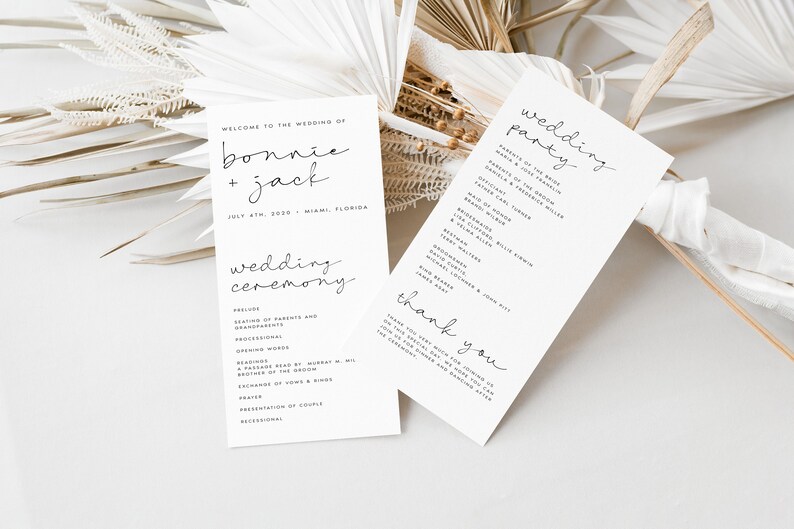 WELCOME TO THE WEDDING OF
bonnie
+ jack
JULY 4TH, 2020 • MIAMI, FLORIDA
wedding
ceremony
PRELUDE
SEATING OF PARENTS AND
GRANDPARENTS
PROCESSIONAL
OPENING WORDS
READINGS
A PASSAGE READ BY MURRAY M. MIL
BROTHER OF THE GROOM
EXCHANGE OF VOWS & RINGS
PRAYER
PRESENTATION OF COUPLE
RECESSIONAL
wedding
party
PARENTS OF THE BRIDE
MARIA & JOSE FRANKLIN
PARENTS OF THE GROOM
DANIELA & FREDERICK MILLER
OFFICIANT
FATHER CARL TURNER
MAID OF HONOR
BRANDI WILBUR
BRIDESMAIDS
LISA CLIFFORD, BILLIE KIRWIN
& VELMA ALLEN
BESTMAN
TERRY WALTERS
GROOMSMEN
DAVID CURTIS,
MICHAEL LOCHNER & JOHN PITT
RING BEARER
JAMES ASAY
thank you
THANK YOU VERY MUCH FOR JOINING US
ON THIS SPECIAL DAY. WE HOPE YOU CAN
JOIN US FOR DINNER AND DANCING AFTER
THE CEREMONY.